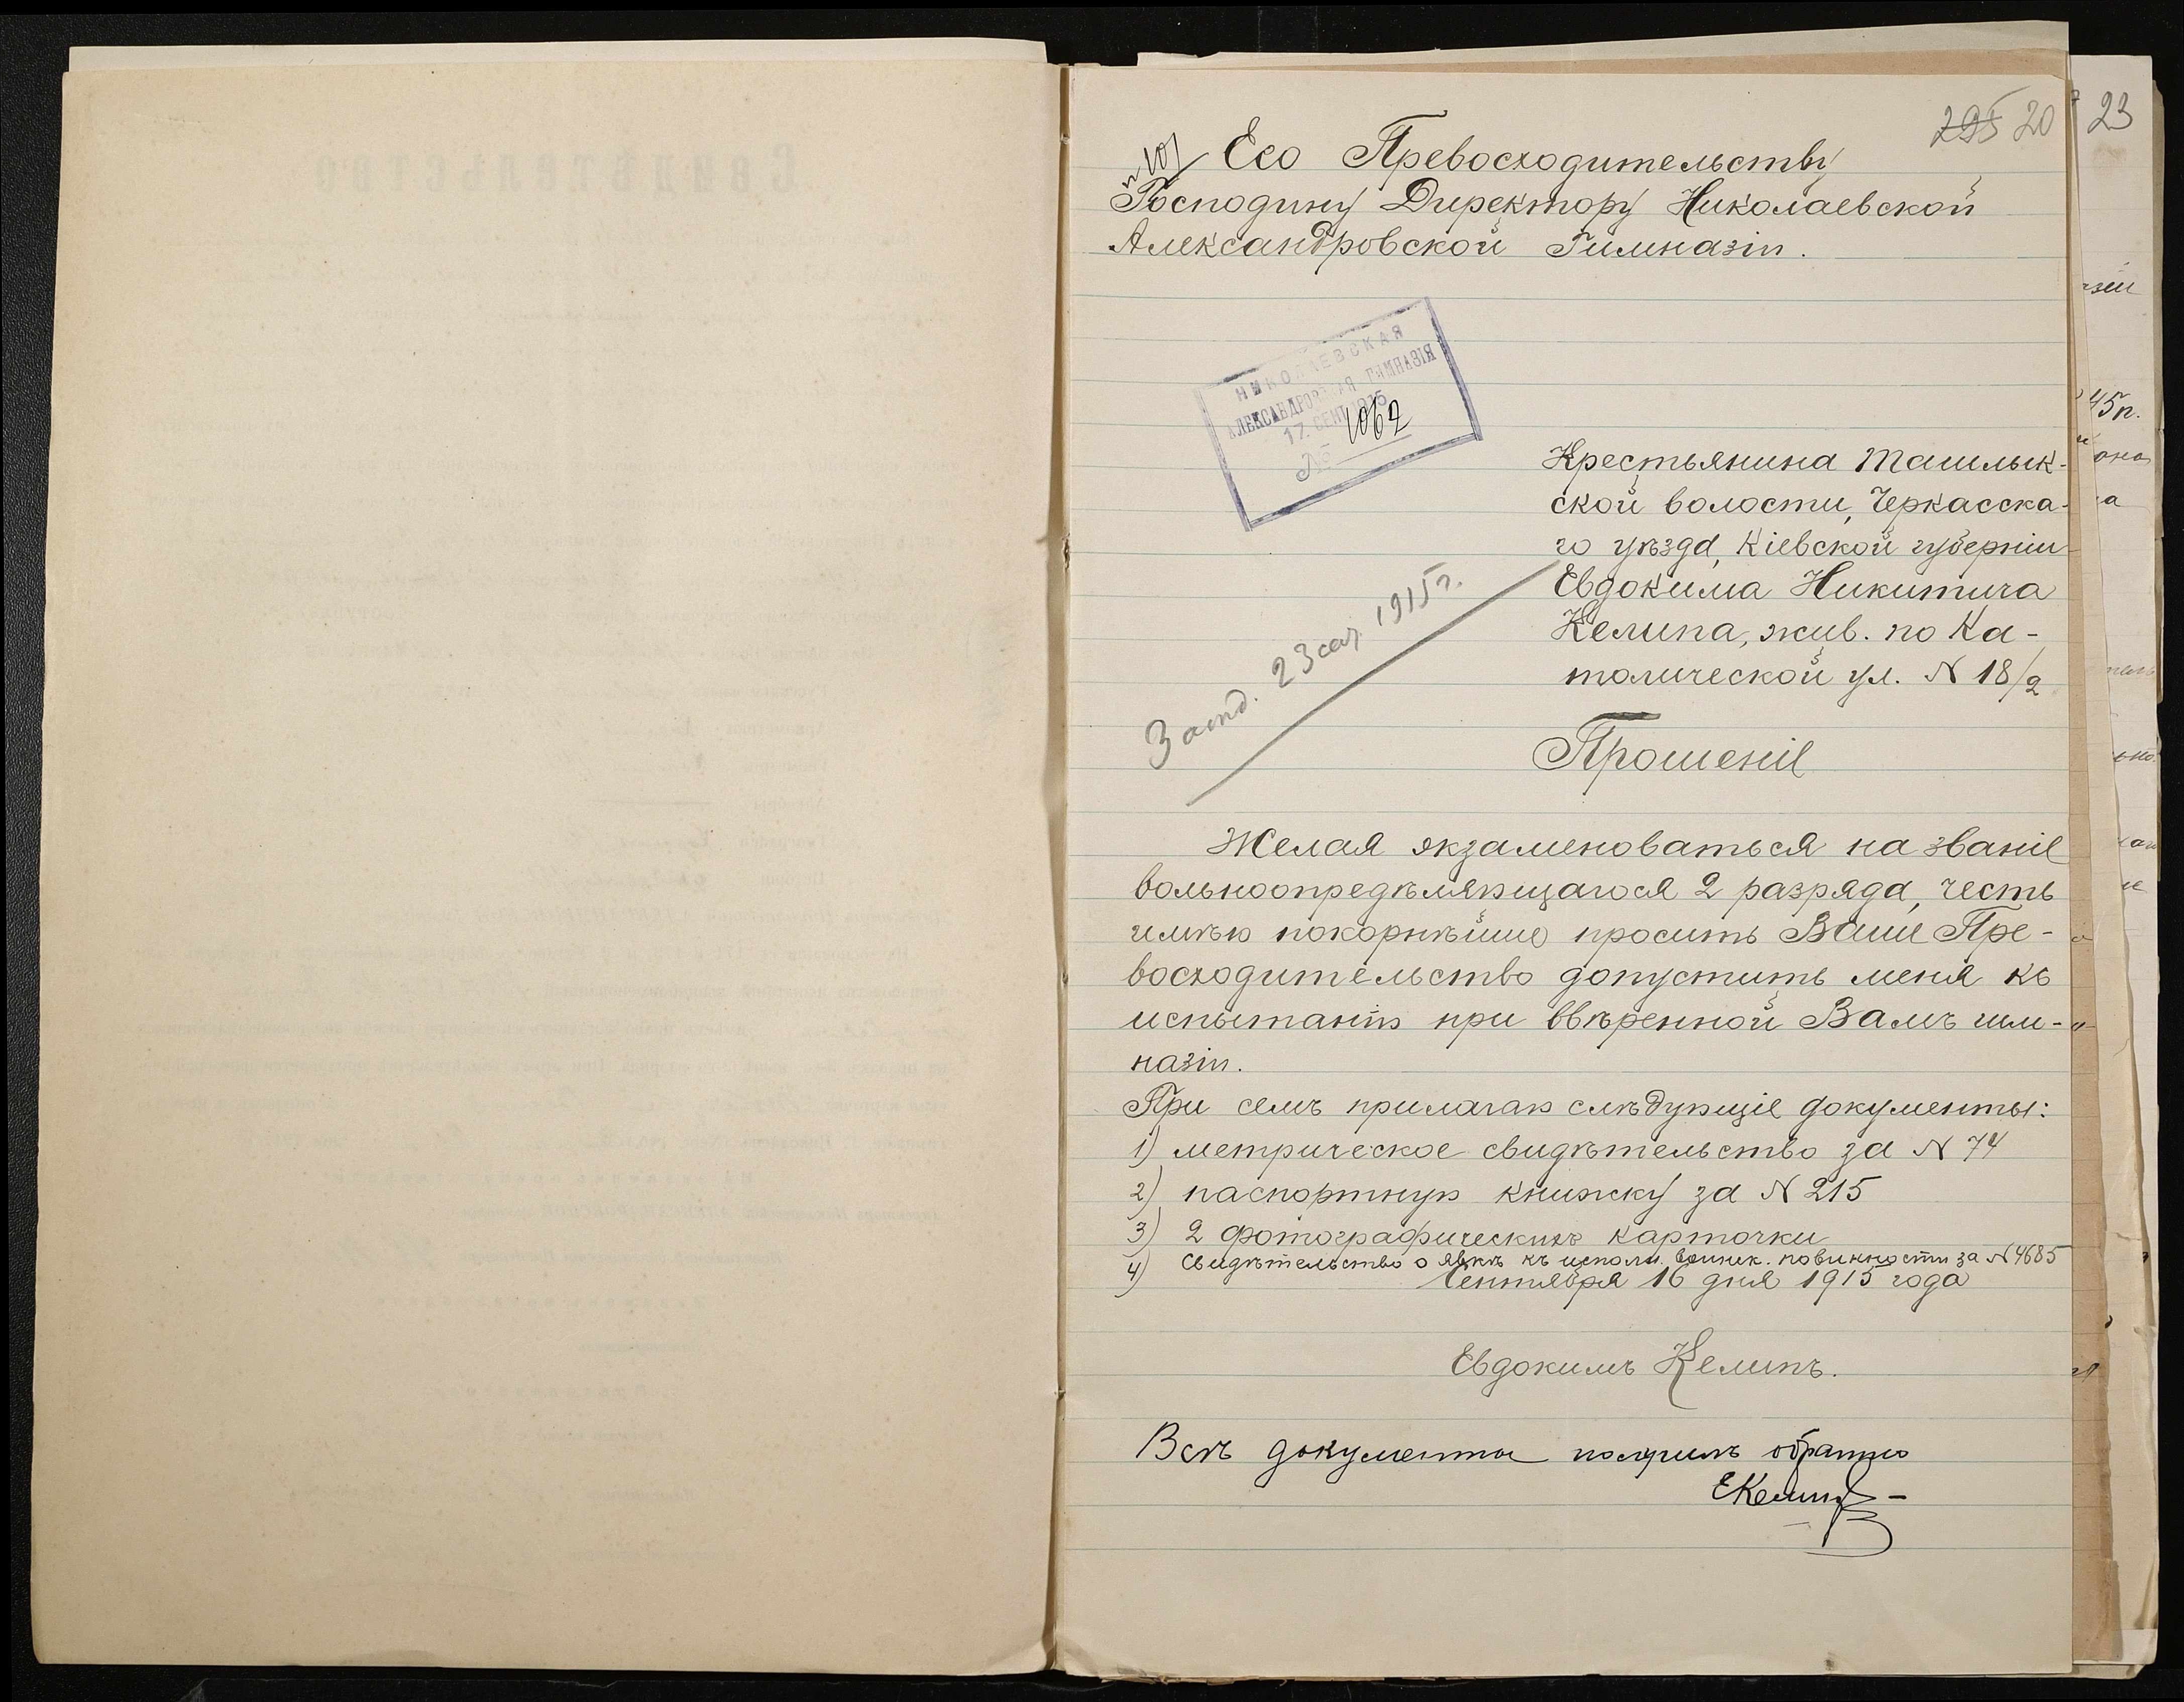 Свидѣтельство
295 20
23
п 10/ Его Превосходительству
Господину Директору Николаевской
Александровской Гимназіи.
НИКОЛАЕВСКАЯ
АЛЕКСАНДРОВСКАЯ ГИМНАЗІЯ
17. СЕНТ 1915
№ 1062
Крестьянина Ташлык-
ской волости, Черкасска-
го уѣзда, Кіевской губерніи
Евдокима Никитича
Келипа, жив. по Ка-
толической ул. N 18/2
23 сент. 1915 г.
Прошеніе
Желая экзаменоваться на званіе
вольноопредѣляющагося 2 разряда, честь
имѣю покорнѣйше просить Ваше Пре-
восходительство допустить меня къ
испытанію при ввѣренной Вамъ гим-
назіи.
При семъ прилагаю слѣдующіе документы:
1) метрическое свидѣтельство за N 74
2) паспортную книжку за N 215
3) 2 фотографическихъ карточки
4) Свидѣтельство о явкѣ къ исполн. воинск. повинности за N 4685
Сентября 16 дня 1915 года
Евдокимъ Келипъ.
Всѣ документы получилъ обратно
ЕКелипъ